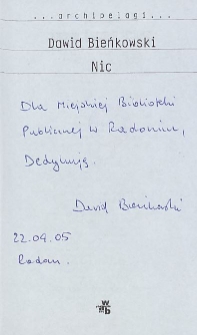 ...archipelagi...
Dawid Bieńkowski
Nic
Dla Miejskiej Biblioteki
Publicznej w Radomiu,
Dedykuję.
Dawid Bieńkowski
22.09.05
Radom.
w
ab